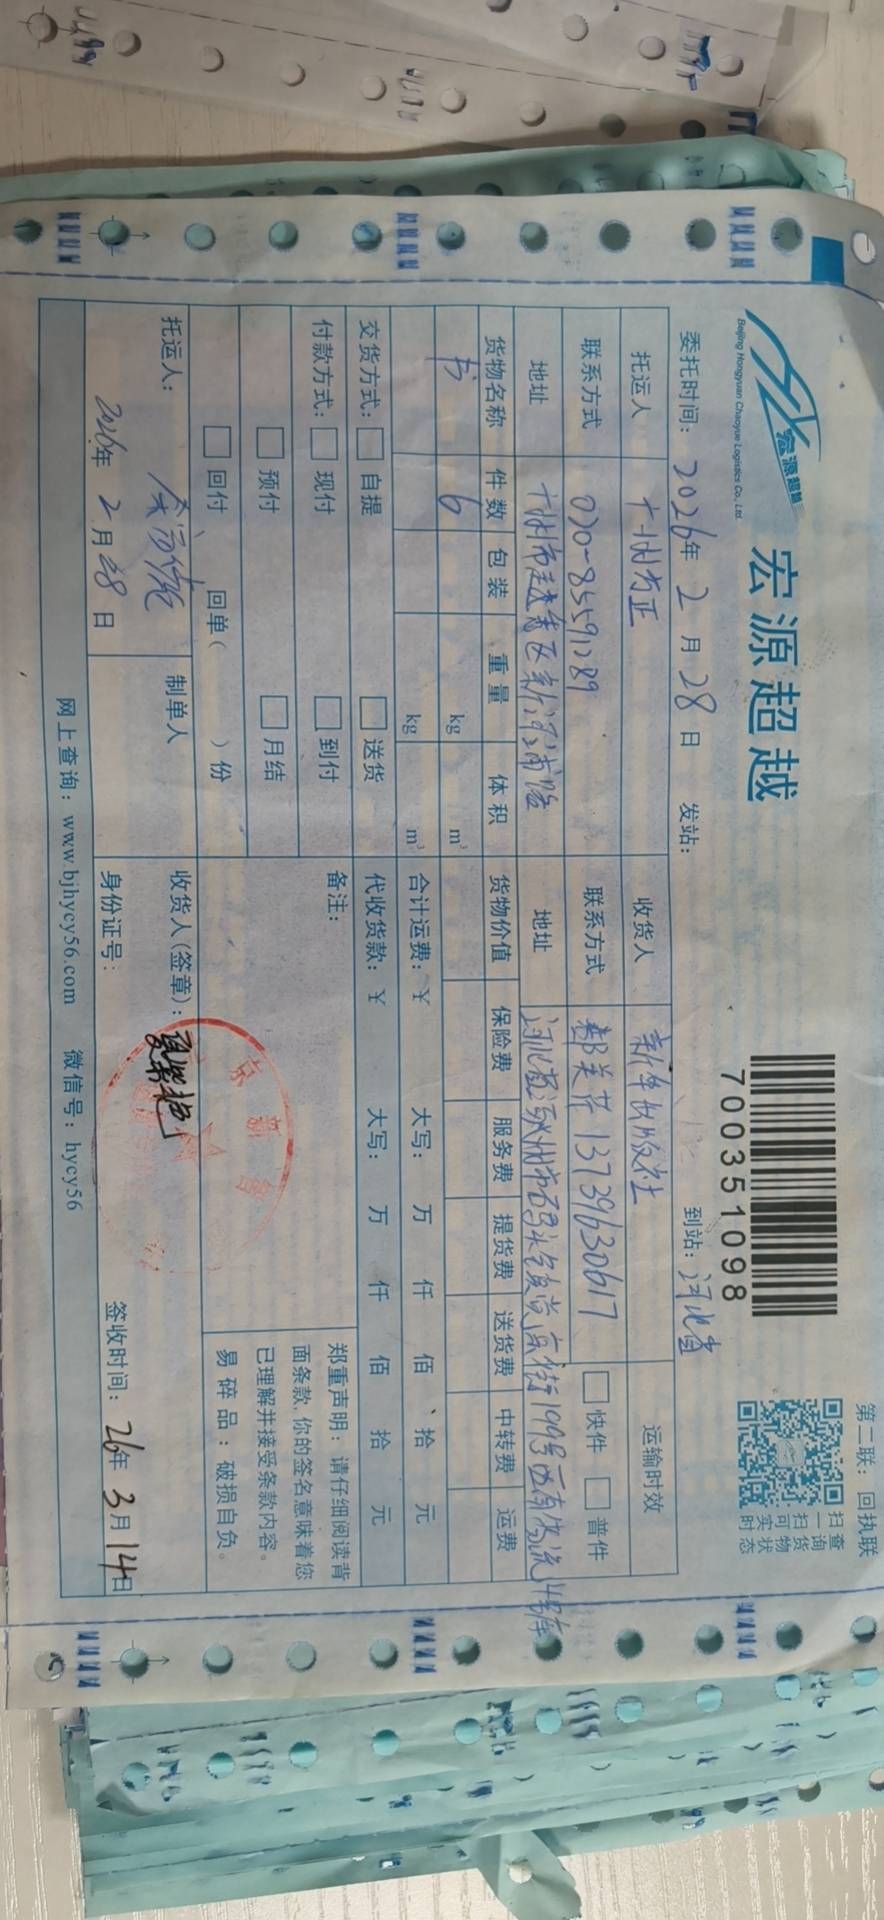 第二联：回执联
宏源超越
Beijing Hongyuan Chaoyue Logistics Co., Ltd.
宏源超越
700351098
扫一扫可实时
查询货物状态
委托时间：2026年2月28日 发站： 到站：河北省
托运人 广州方正 收货人 新华出版社 运输时效
联系方式 020-85591289 联系方式 郝美芹 13739630617 快件 普件
地址 广州市越秀区新河浦路 地址 河北省涿州市码头镇 街199号西南物流4号库
货物名称 件数 包装 重量 体积 货物价值 保险费 服务费 提货费 送货费 中转费 运费
书 6 kg m³
kg m³ 合计运费：¥ 大写： 万 仟 佰 拾 元
交货方式： 自提 送货 代收货款：¥ 大写： 万 仟 佰 拾 元
付款方式： 现付 到付 备注：
预付 月结
回付 回单（ ）份
郑重声明：请仔细阅读背
面条款，你的签名意味着您
已理解并接受条款内容。
易碎品：破损自负。
托运人： 制单人 收货人（签章）：
2026年2月28日 身份证号： 签收时间：26年3月14日
网上查询：www.bjhycy56.com 微信号：hycy56